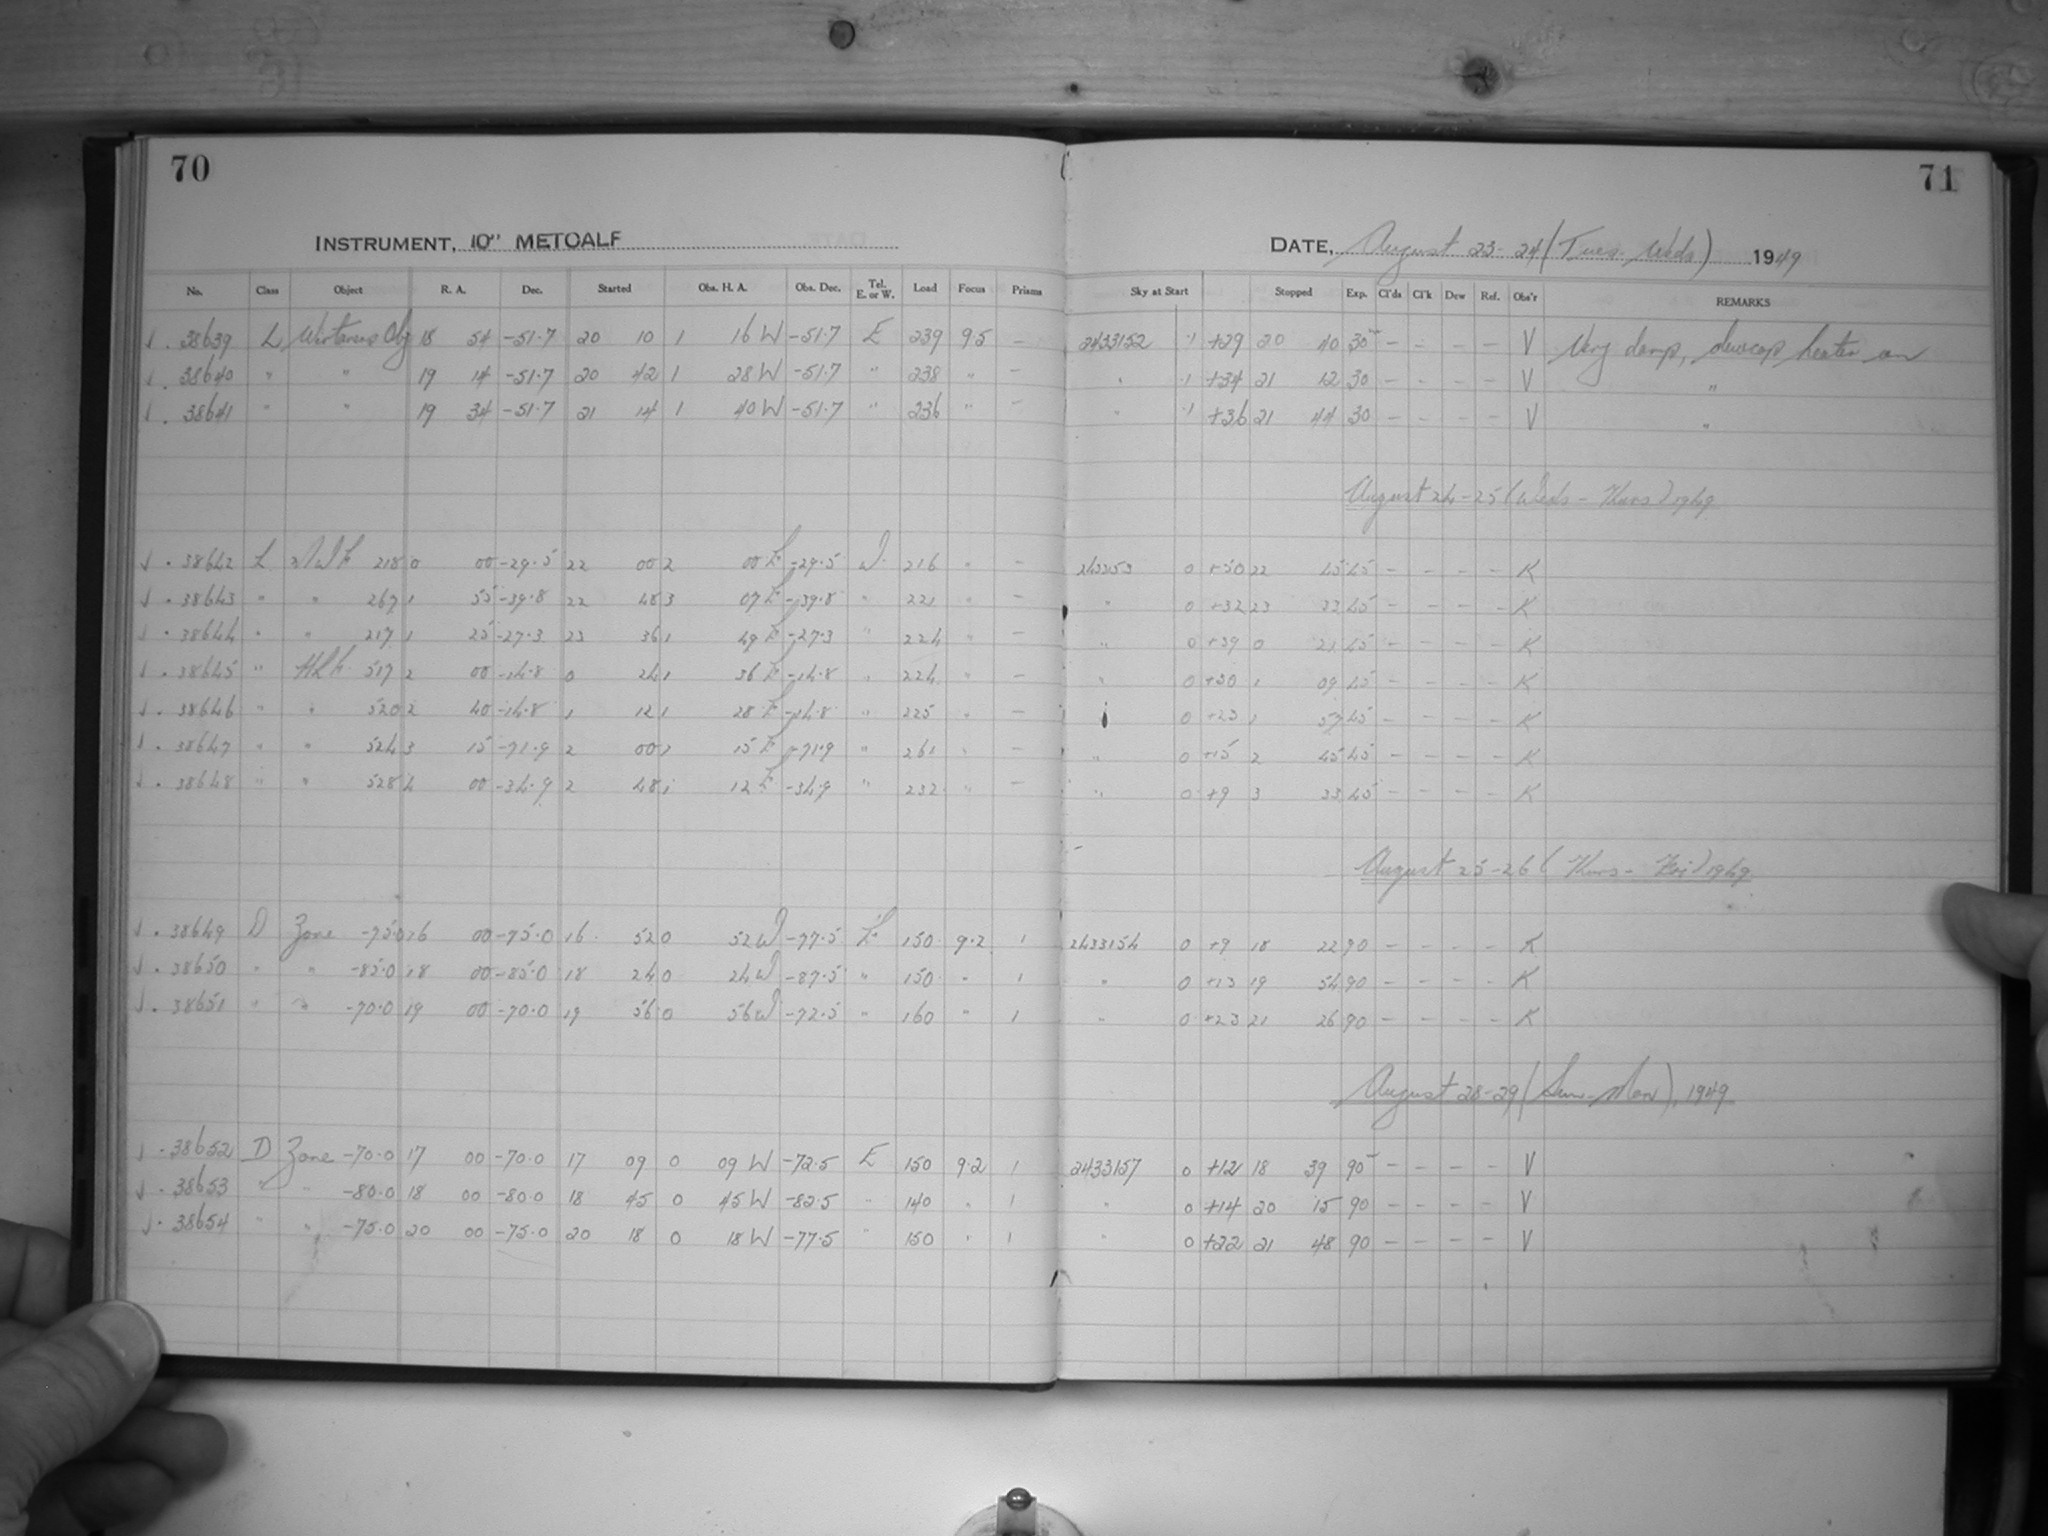 70
71
INSTRUMENT, 10" METCALF
DATE, August 23-24 (Tues-Weds) 1949
No. Class Object R. A. Dec. Started Obs. H. A. Obs. Dec. Tel. E. or W. Load Focus Prisms Sky at Start Stopped Exp. Cl'ds Cl'k Dew Ref. Obs'r REMARKS
38639 L Obj 18 54 -51.7 20 10 1 16 W -51.7 E 239 9.5 - 2433152 .1 +29 20 40 30 - - - - V Very damp, dewcap heater on
38640 " " 19 14 -51.7 20 42 1 28 W -51.7 " 238 " - " .1 +34 21 12 30 - - - - V "
38641 " " 19 34 -51.7 21 14 1 40 W -51.7 " 236 " - " .1 +36 21 44 30 - - - - V "
August 24-25 (Weds - Thurs) 1949
38642 L 218 0 00 -29.5 22 00 2 00 E -29.5 W 216 " - 0 +30 22 45 45 - - - - K
38643 " " 267 1 55 -39.8 22 48 3 07 E -39.8 " 221 " - " 0 +32 23 33 45 - - - - K
38644 " " 217 1 25 -27.3 23 36 1 49 E -27.3 " 224 " - " 0 +39 0 21 45 - - - - K
38645 " 517 2 00 -14.8 0 24 1 36 E -14.8 " 224 " - " 0 +30 1 09 45 - - - - K
38646 " " 520 2 40 -14.8 1 12 1 28 E -14.8 " 225 " - 0 +23 1 57 45 - - - - K
38647 " " 524 3 15 -71.9 2 00 1 15 E -71.9 " 261 " - " 0 +15 2 45 45 - - - - K
38648 " " 528 4 00 -34.9 2 48 1 12 E -34.9 " 232 " - " 0 +9 3 33 45 - - - - K
August 25-26 (Thurs - Fri) 1949
38649 D Zone -75.0 16 00 -75.0 16 52 0 52 W -77.5 E 150 9.2 1 2433154 0 +9 18 22 90 - - - - K
38650 " " -85.0 18 00 -85.0 18 24 0 24 W -87.5 " 150 " 1 " 0 +13 19 54 90 - - - - K
38651 " " -70.0 19 00 -70.0 19 56 0 56 W -72.5 " 160 " 1 " 0 +23 21 26 90 - - - - K
August 28-29 (Sun-Mon), 1949
38652 D Zone -70.0 17 00 -70.0 17 09 0 09 W -72.5 E 150 9.2 1 2433157 0 +12 18 39 90 - - - - V
38653 " " -80.0 18 00 -80.0 18 45 0 45 W -82.5 " 140 " 1 " 0 +14 20 15 90 - - - - V
38654 " " -75.0 20 00 -75.0 20 18 0 18 W -77.5 " 150 " 1 " 0 +22 21 48 90 - - - - V